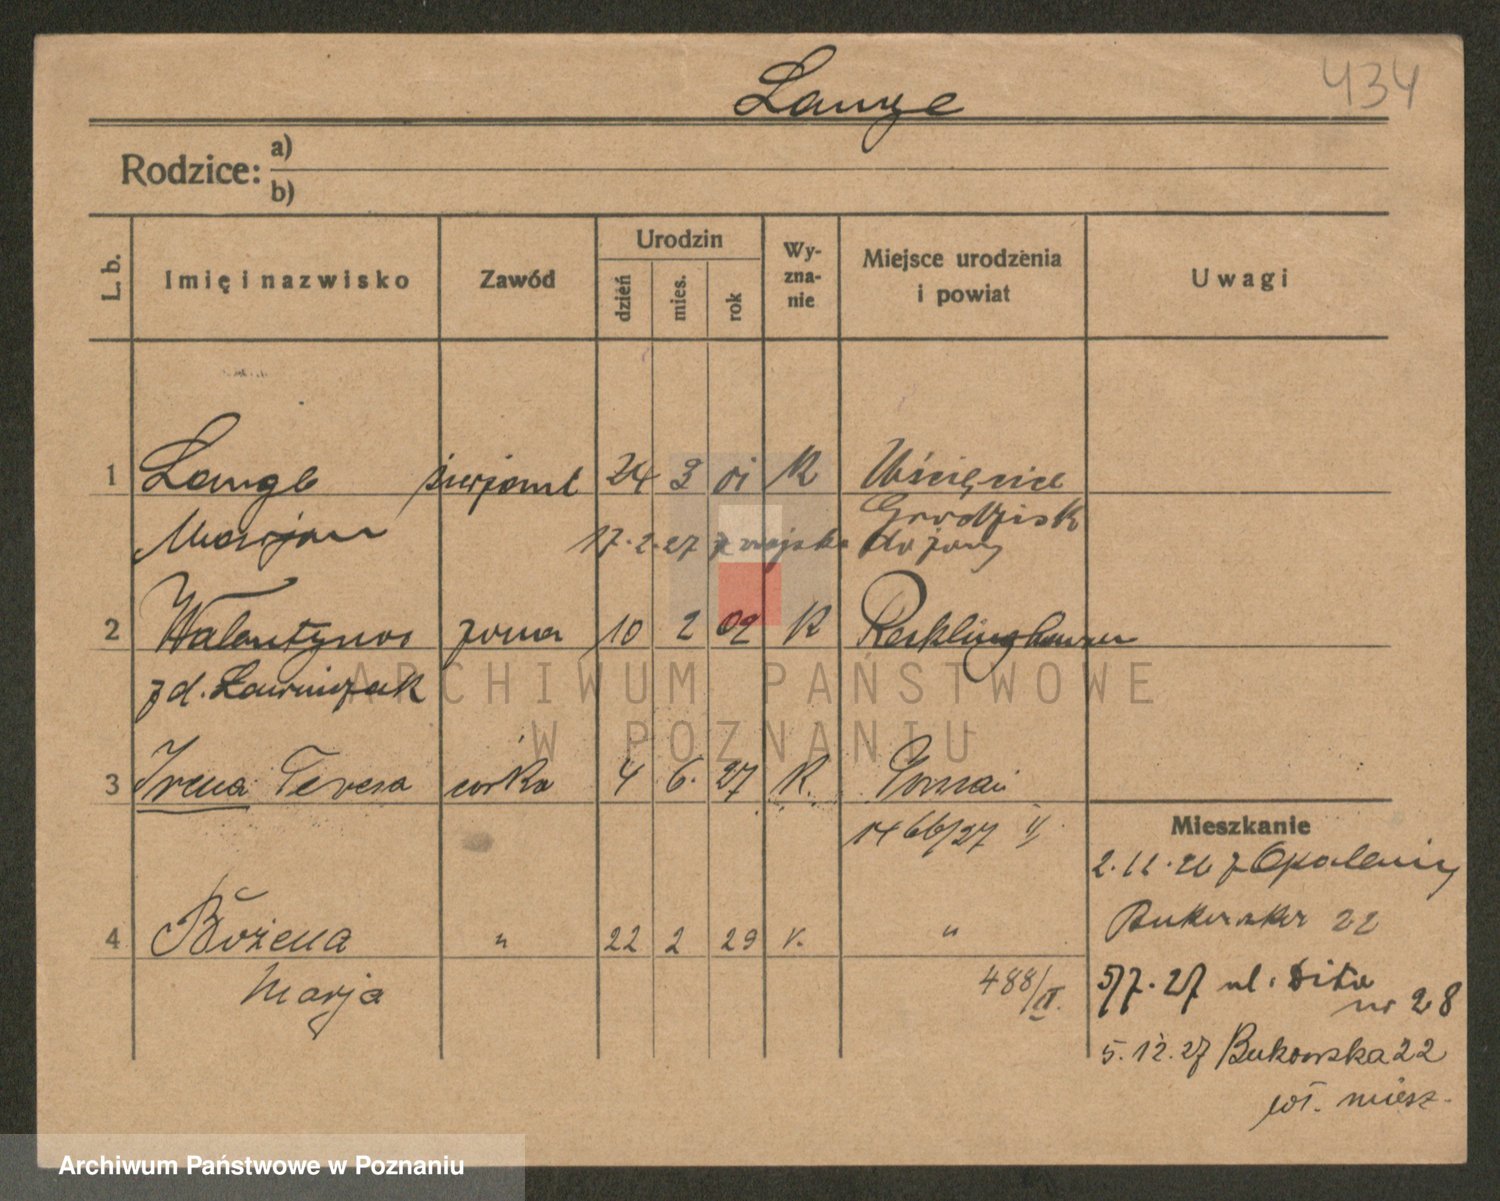 Lange
434
Rodzice: a)
b)
L. b.
Imię i nazwisko
Zawód
Urodzin
dzień
mies.
rok
Wy-
zna-
nie
Miejsce urodzenia
i powiat
Uwagi
1 Lange sierjant 24 3 01 K Uścięcice
Marjan 17.2.27 z wojska Grodzisk
2 Walentyna żona 10 2 02 K Recklinghausen
z d. Ławniczak
3 Irena Teresa córka 4 6. 27 K. Poznań
1466/27 II
4 Bożena " 22 2 29 K. "
Marja 488/II.
Mieszkanie
2.11.26 z Opalenicy
Bukowska 22
5/7.27 ul. Dita
nr 28
5.12.27 Bukowska 22
wł. miesz.
ARCHIWUM PAŃSTWOWE
W POZNANIU
Archiwum Państwowe w Poznaniu